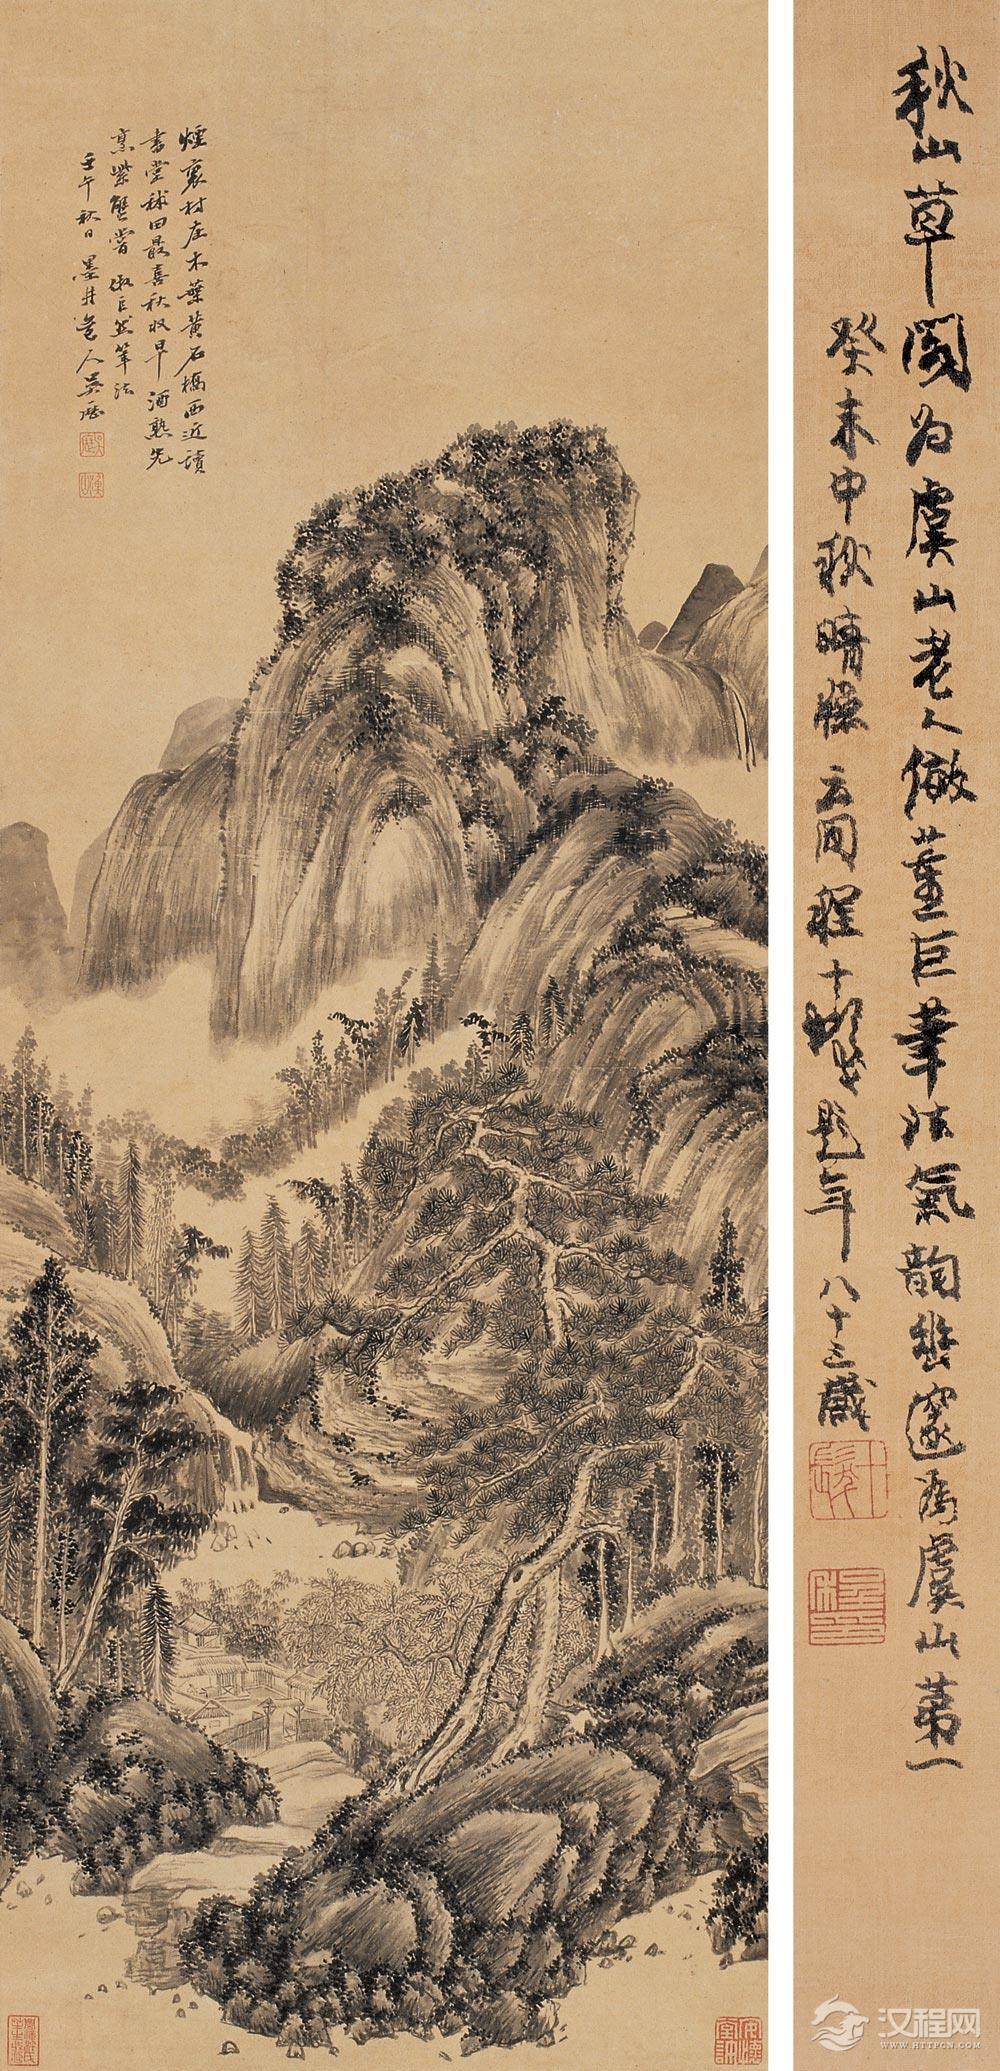 煙裏村庄木葉黃石橋西近讀
書堂秫田最喜秋收早酒熟先
烹紫蟹嘗 倣巨然筆法
壬午秋日墨井道人吳歷
秋山草閣為虞山老人倣董巨筆法氣韻幽邃為虞山第一
癸未中秋晴窗云間程十髮題年八十三歲
十髮
汉程网
WWW.HTTPCN.COM